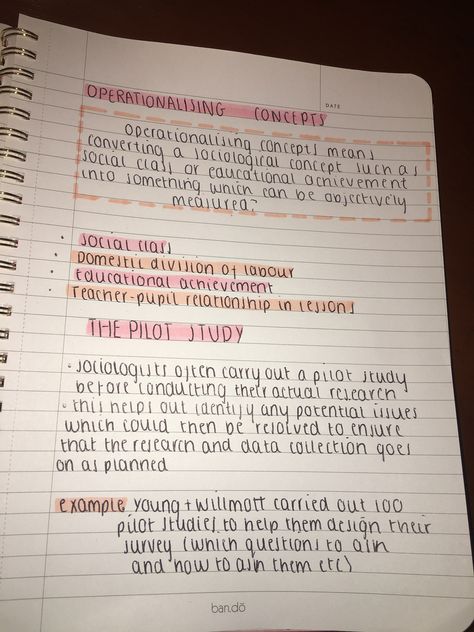 DATE
OPERATIONALISING CONCEPTS
Operationalising concepts means
converting a sociological concept such as
social class or educational achievement
into something which can be objectively
measured-
• social class
• Domestic division of labour
• Educational achievement
• Teacher-pupil relationship in lessons
THE PILOT STUDY
• sociologists often carry out a pilot study
before conducting their actual research
• this helps out identify any potential issues
which could then be resolved to ensure
that the research and data collection goes
on as planned
example young + willmott carried out 100
pilot studies to help them design their
survey (which questions to ask
and how to ask them etc)
ban.dō